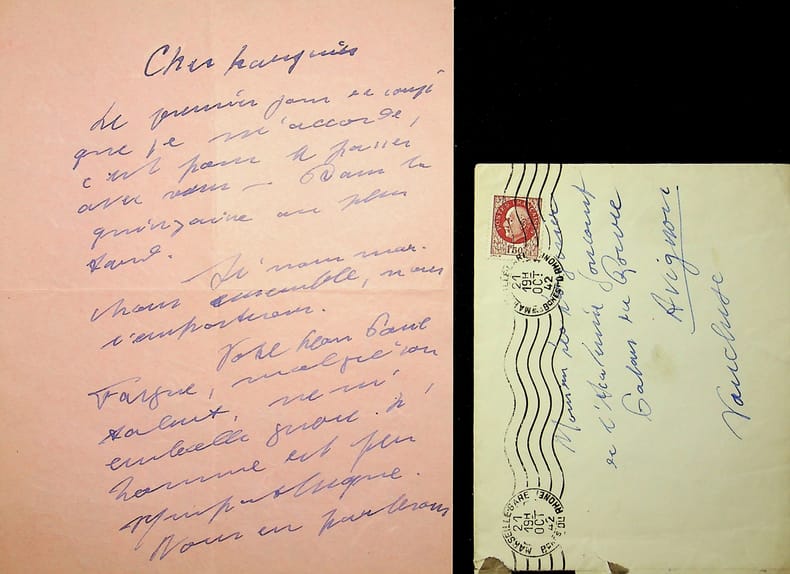 Cher
Le premier jour de congé
que je m'accorde,
c'est pour le passer
avec vous — Dans la
quinzaine au plus
tard.
Si nous mar-
chons ensemble, nous
l'emporterons.
Votre Léon Paul
Fargue, malgré son
talent, ne m'
emballe guère. L'
homme est peu
sympathique.
Nous en parlerons
POSTES FRANÇAISES
1F50
MARSEILLE-GARE
21
19H
OCT
42
BCHES DU RHONE
Monsieur
et
Palais du Roure
Avignon
Vaucluse
MARSEILLE-GARE
21
19H
OCT
42
BCHES DU RHONE